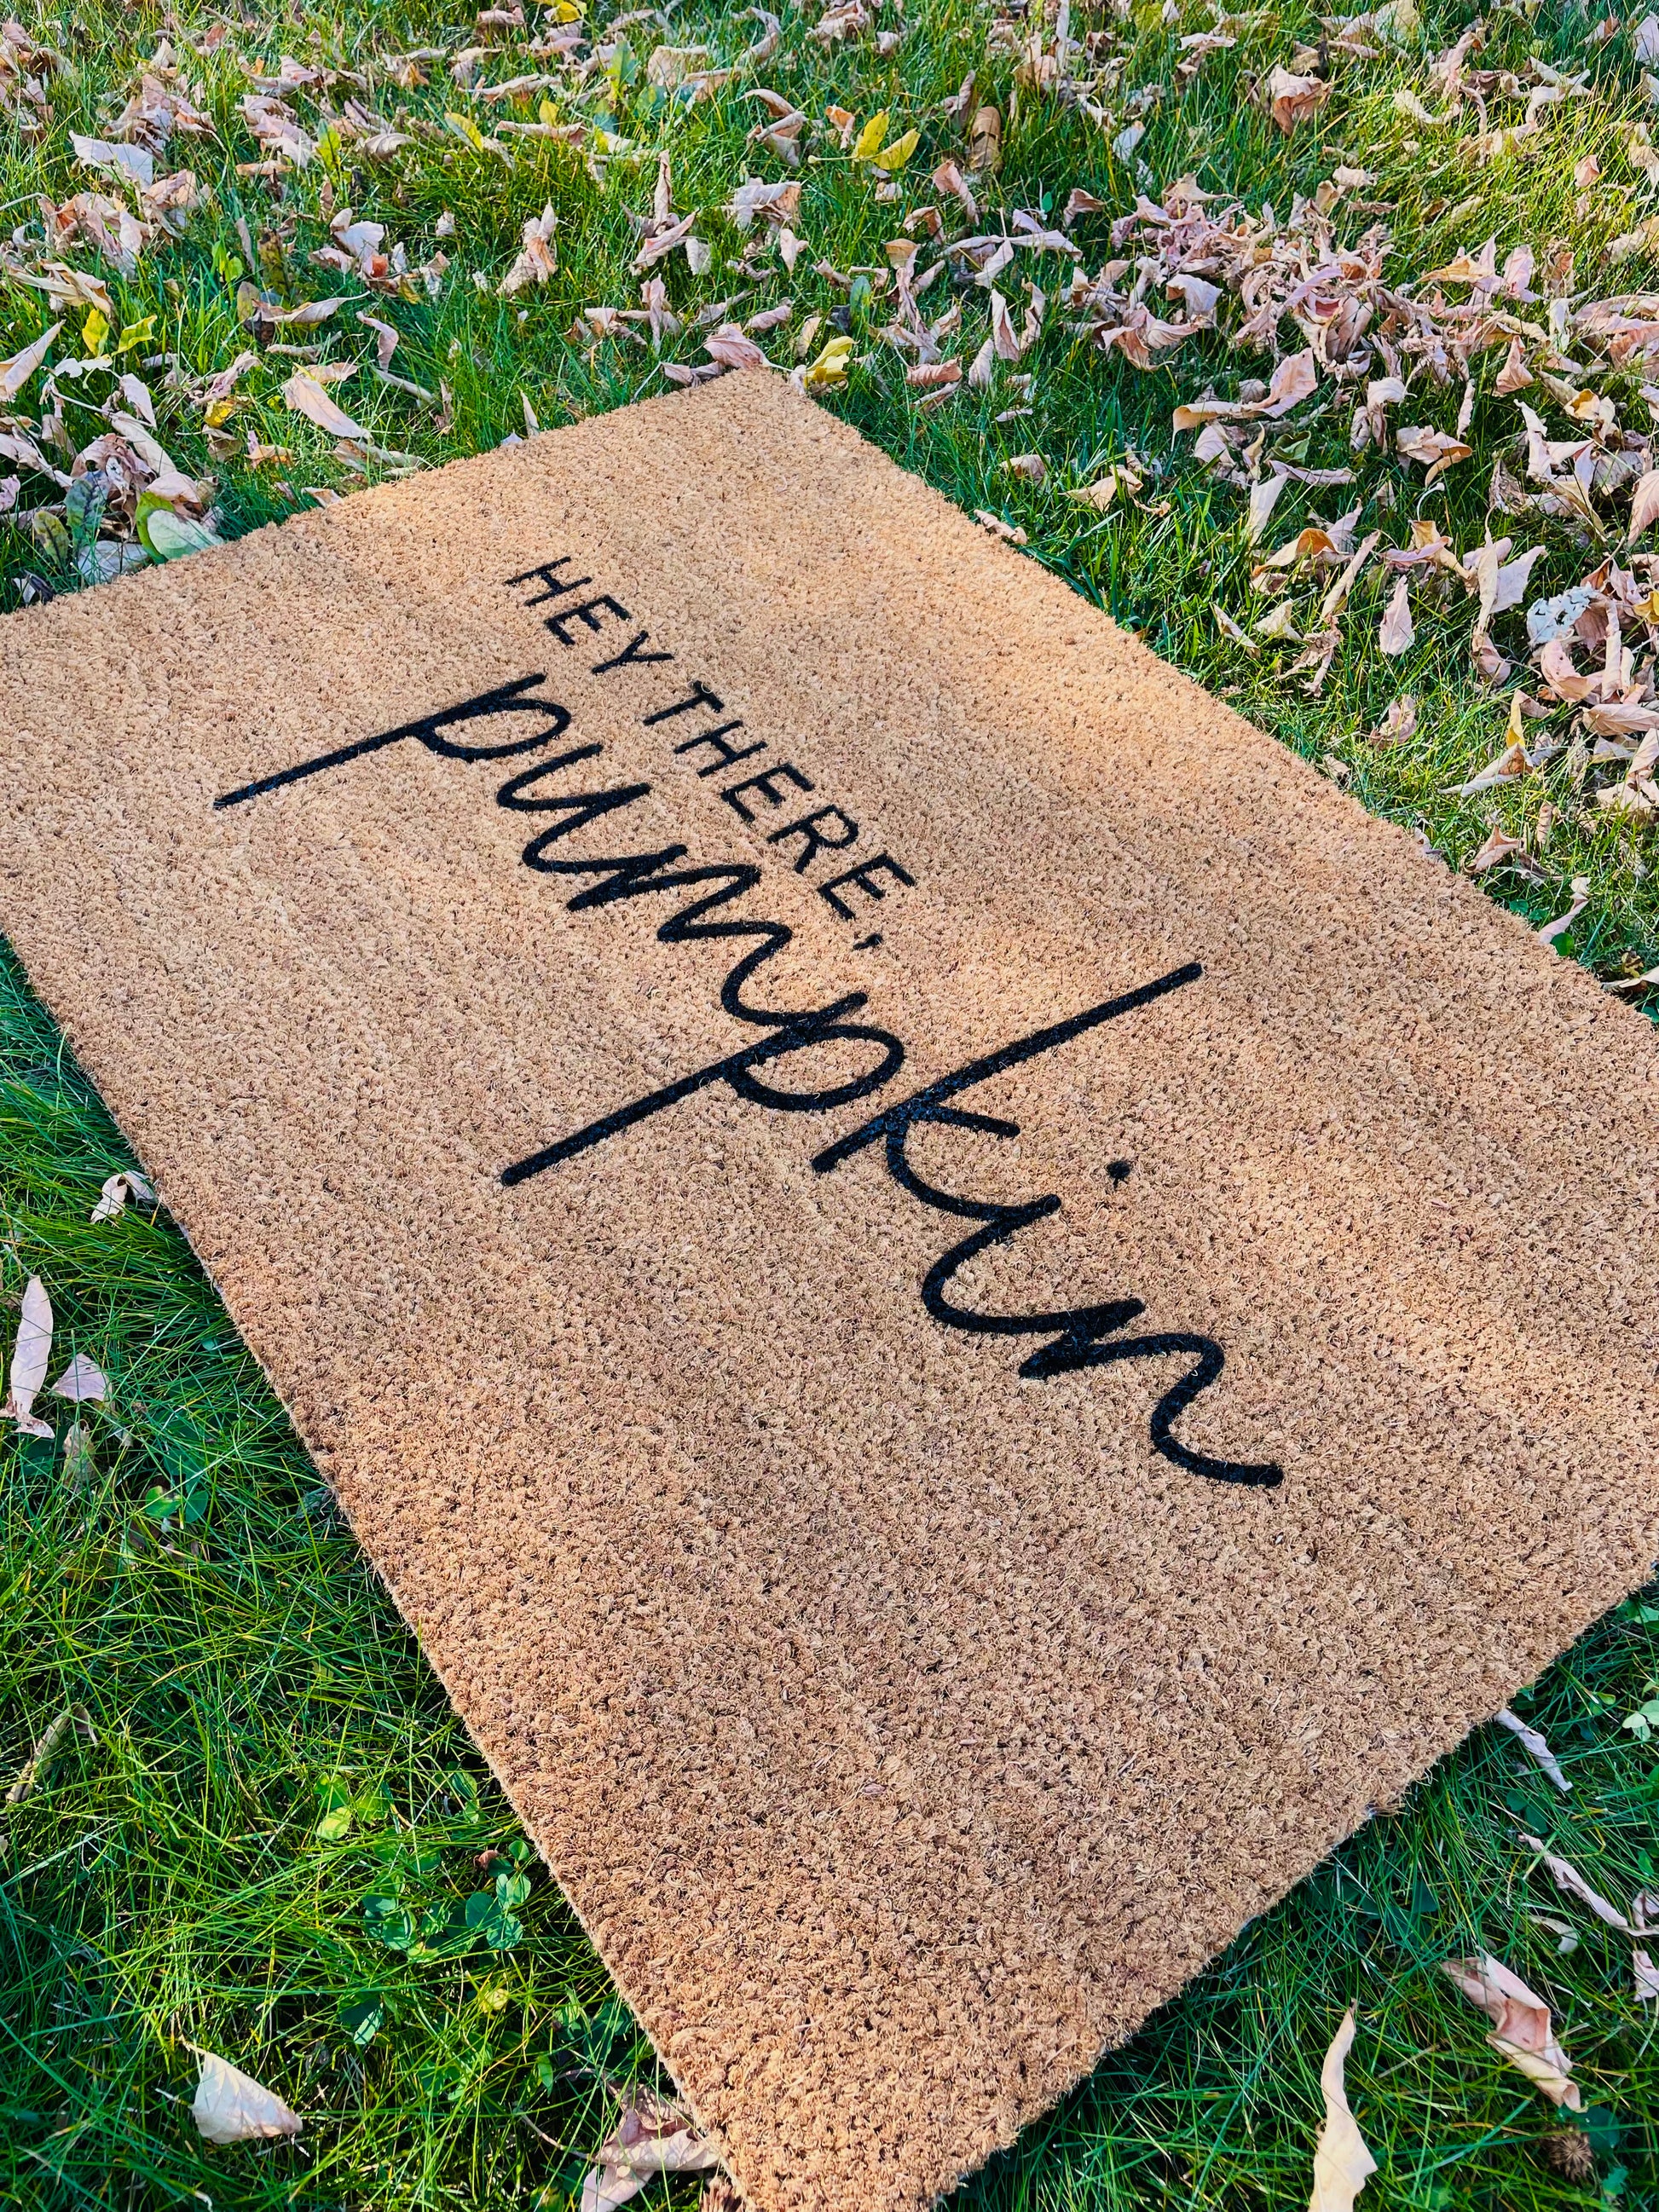 HEY THERE,
pumpkin